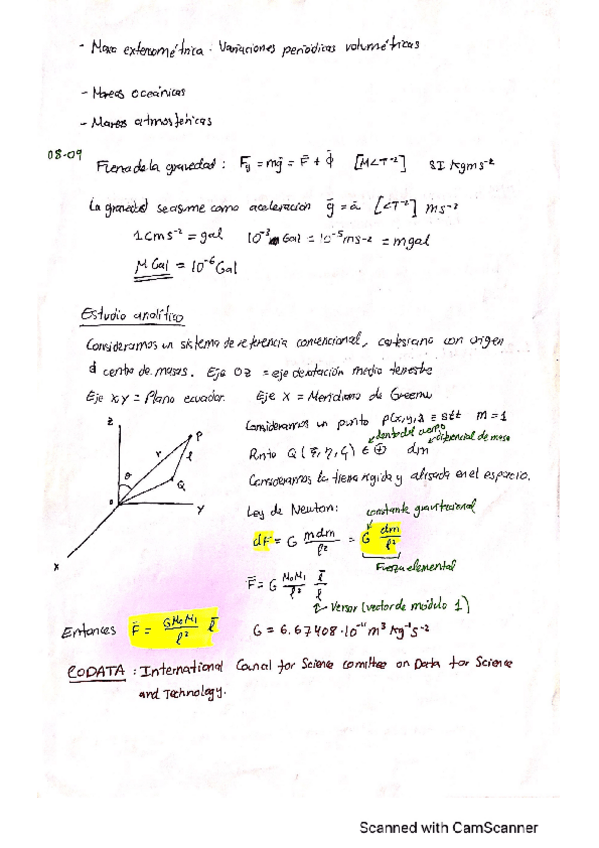 - Marea extensométrica: Variaciones periódicas volumétricas
- Mareas oceánicas
- Mareas atmosféricas
08-09
Fuerza de la gravedad: F̄g = mḡ = F̄ + Φ̄ [MLT⁻²] SI Kgms⁻²
La gravedad se asume como aceleración ḡ = ā [LT⁻²] ms⁻²
1cms⁻² = gal 10⁻³ Gal = 10⁻⁵ms⁻² = mgal
MGal = 10⁻⁶Gal
Estudio analítico
Consideramos un sistema de referencia convencional, cartesiano con origen
centro de masas. Eje OZ = eje de rotación medio terrestre
Eje x,y = Plano ecuador. Eje X = Meridiano de Greenw
Z
P
r
l
θ
Q
o
Y
X
Consideramos un punto P(x,y,z) m=1
dentro del cuerpo
diferencial de masa
Punto Q(ξ,η,ζ) ∈ ⊕ dm
Consideramos la tierra rígida y aislada en el espacio.
Ley de Newton:
constante gravitacional
dF = G mdm/l² = G dm/l²
Fuerza elemental
F̄ = G M₀M₁/l² l̄/l
Versor (vector de módulo 1)
Entonces F̄ = GM₀M₁/l² l̄
G = 6.67408·10⁻¹¹ m³ Kg⁻¹ s⁻²
CODATA: International Council for Science comittee on Data for Science
and Technology.
Scanned with CamScanner